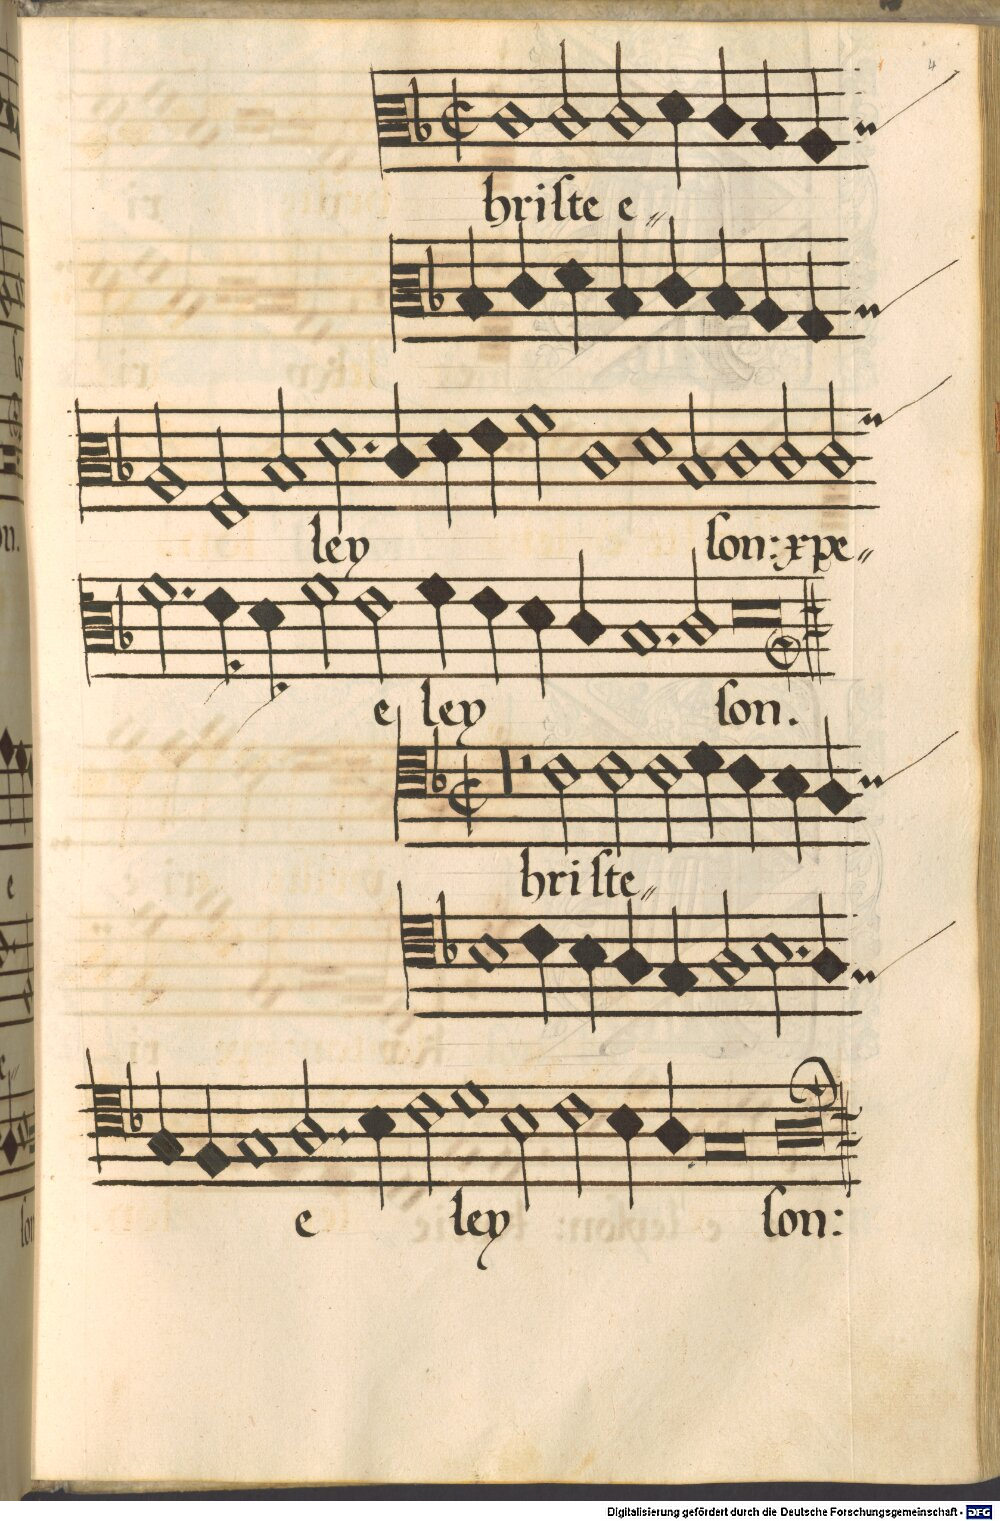 4
hriste e
ley son: xpe
e ley son.
hriste
e ley son:
Digitalisierung gefördert durch die Deutsche Forschungsgemeinschaft - DFG